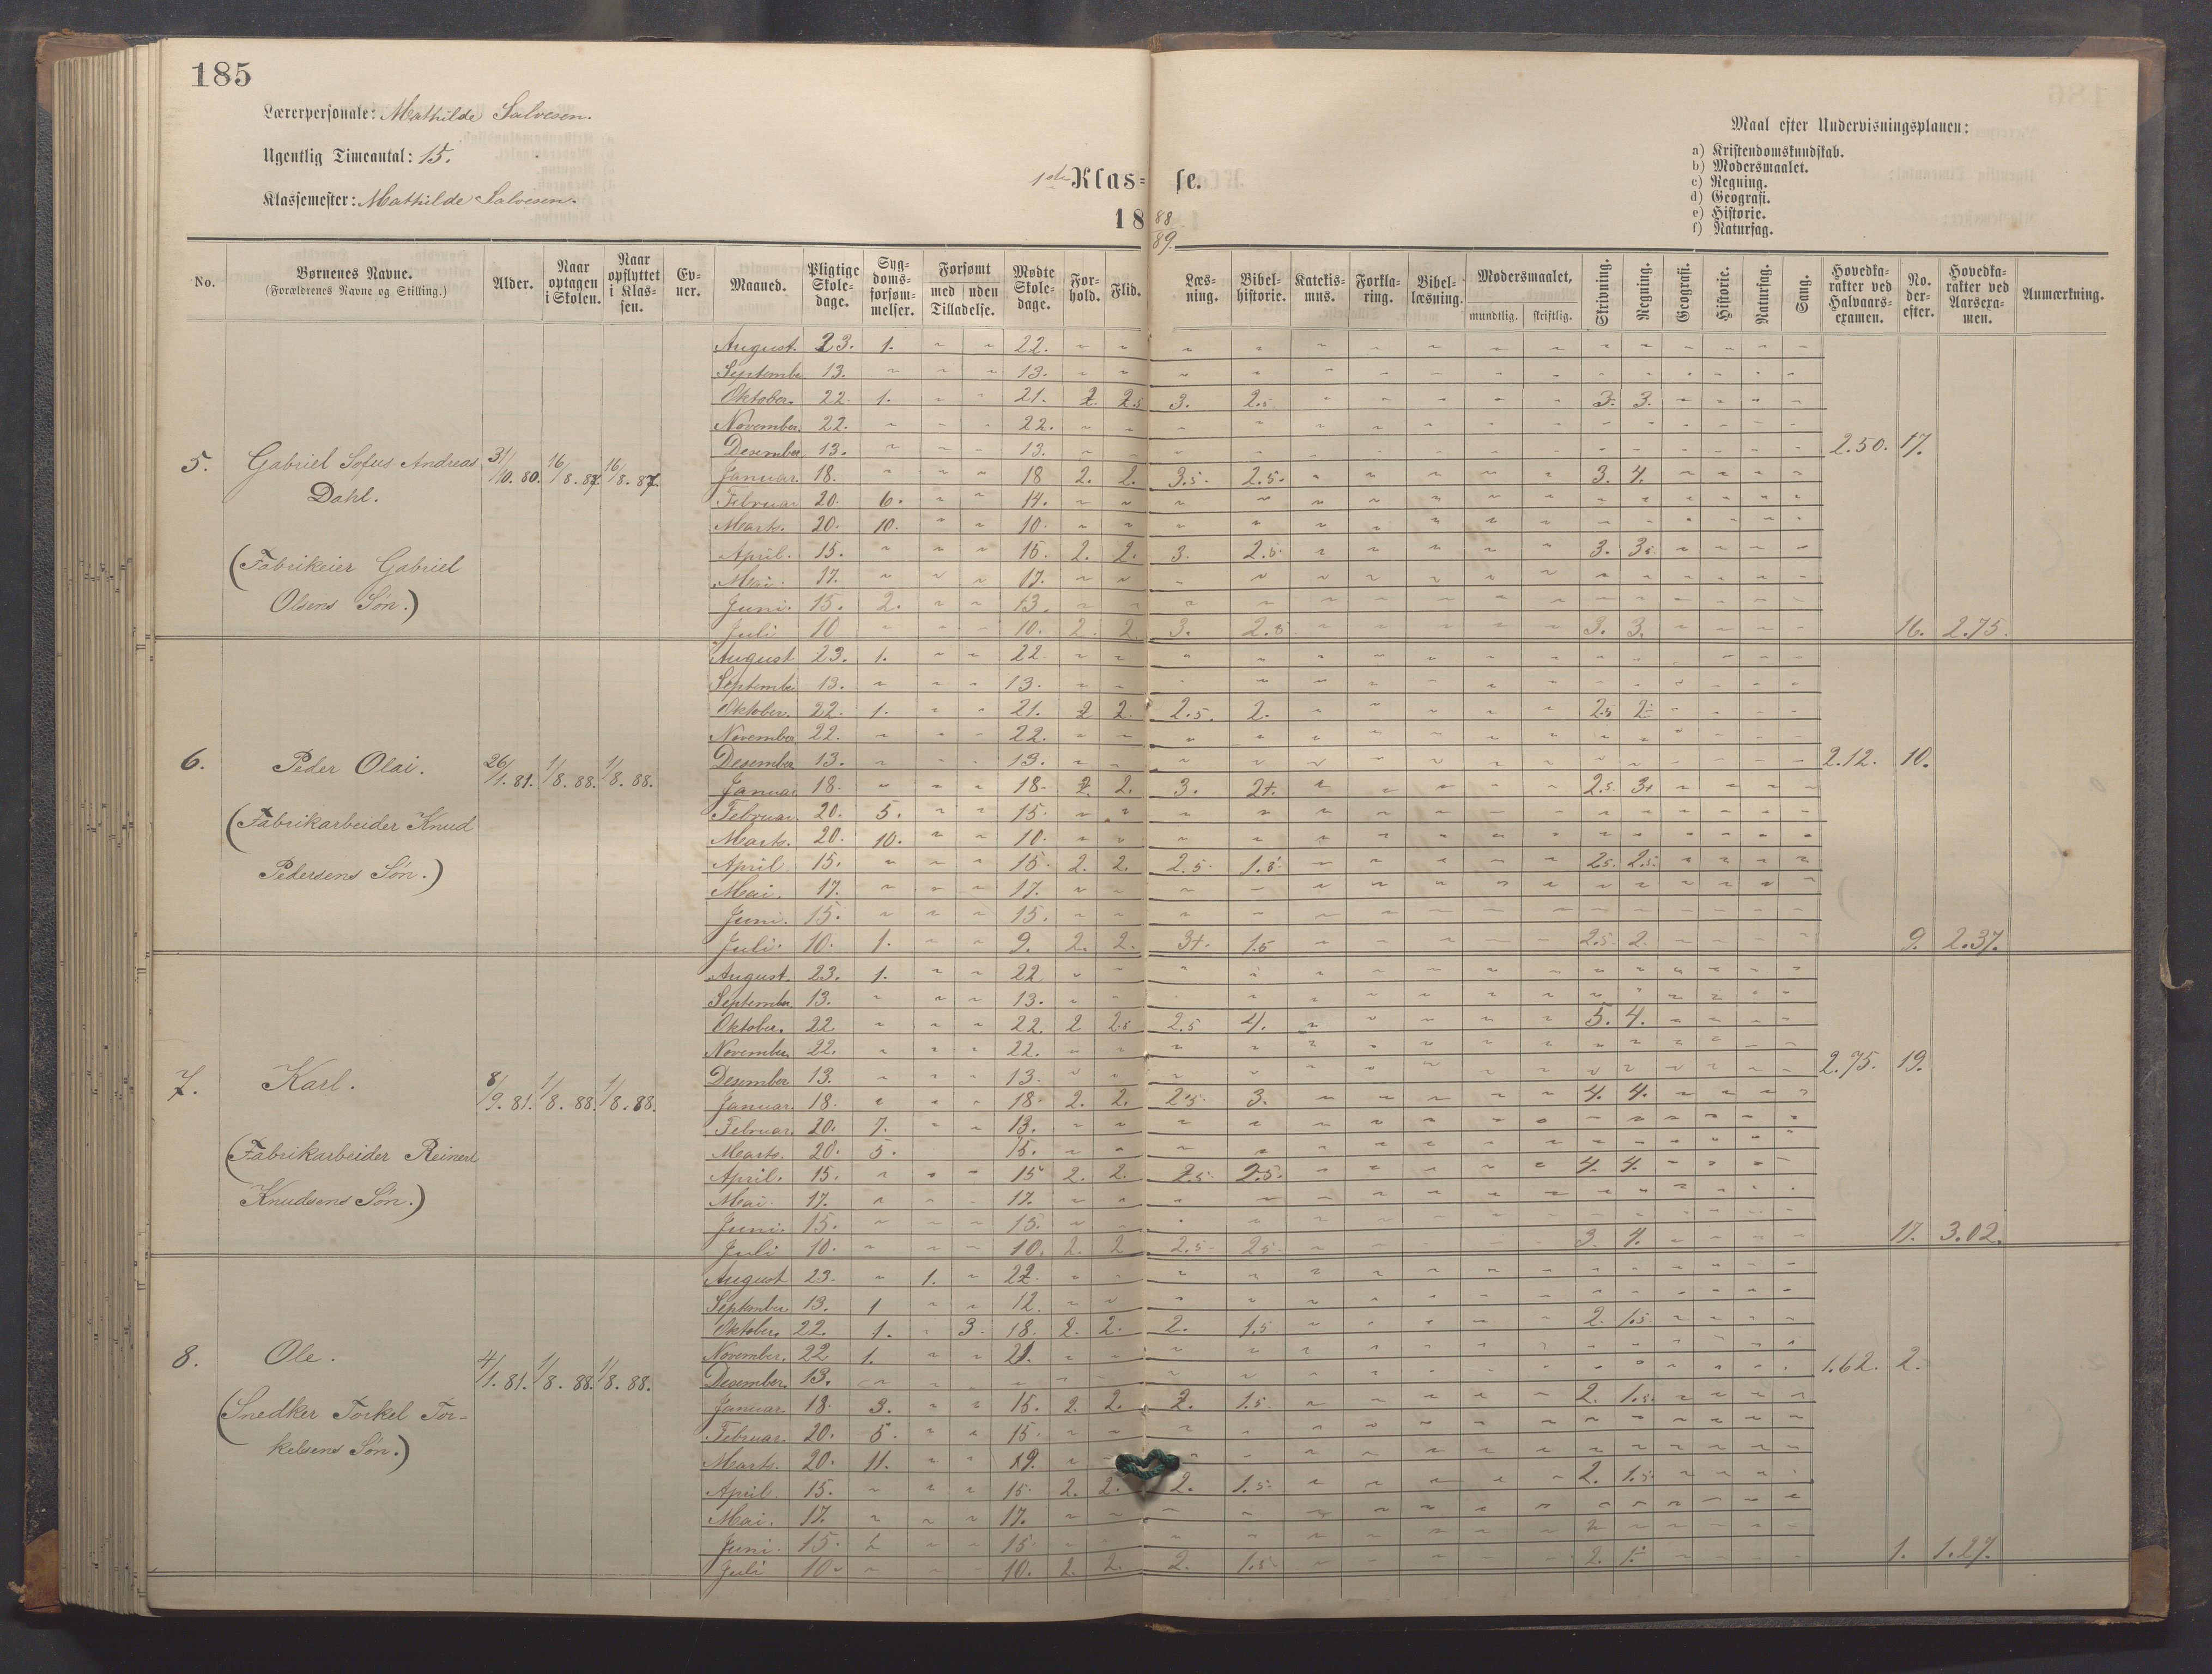 185
Lærerpersonale: Mathilde Salvesen.
Ugentlig Timeantal: 15.
Klassemester: Mathilde Salvesen.
1ste Klas- se.
18 88/89.
Maal efter Undervisningsplanen:
a) Kristendomskundskab.
b) Modersmaalet.
c) Regning.
d) Geografi.
e) Historie.
f) Naturfag.
No. Børnenes Navne. (Forældrenes Navne og Stilling.) Alder. Naar optagen i Skolen. Naar opflyttet i Klas- sen. Ev- ner. Maaned. Pligtige Skole- dage. Syg- doms- forsøm- melser. Forsømt med uden Tilladelse. Mødte Skole- dage. For- hold. Flid. Læs- ning. Bibel- historie. Katekis- mus. Forkla- ring. Bibel- læsning. Modersmaalet, mundtlig. skriftlig. Skrivning. Regning. Geografi. Historie. Naturfag. Sang. Hovedka- rakter ved Halvaars- examen. No. der- efter. Hovedka- rakter ved Aarsexa- men. Anmærkning.
5. Gabriel Sofus Andreas Dahl. 31/10. 80. 16/8. 87. 16/8. 87.
(Fabrikeier Gabriel
Olsens Søn.)
August. 23. 1. " " 22.
Septembe 13. " " " 13.
Oktober. 22. 1. " " 21. 2. 2.5 3. 2.5. 3. 3.
November. 22. " " " 22.
Desember 13. " " " 13. 2.50. 17.
Januar. 18. " " " 18 2. 2. 3.5. 2.5. 3. 4.
Februar 20. 6. " " 14.
Marts. 20. 10. " " 10.
April. 15. " " " 15. 2. 2. 3. 2.5. 3. 3.5.
Mai. 17. " " " 17.
Juni. 15. 2. " " 13.
Juli 10 " " " 10. 2. 2. 3. 2.5 3. 3. 16. 2.75.
6. Peder Olai. 26/1. 81. 1/8. 88. 1/8. 88.
(Fabrikarbeider Knud
Pedersens Søn.)
August 23. 1. " " 22.
Septembe 13. " " " 13.
Oktober. 22. 1. " " 21. 2 2. 2.5. 2. 2.5 2.
November 22. " " " 22.
Desember 13. " " " 13. 2.12. 10.
Januar 18. " " " 18. 2. 2. 3. 2+. 2.5 3+
Februar. 20. 5. " " 15.
Marts. 20. 10. " " 10.
April 15. " " " 15. 2. 2. 2.5. 1.5. 2.5. 2.5.
Mai. 17. " " " 17.
Juni. 15. " " " 15.
Juli. 10. 1. " " 9. 2. 2. 3+. 1.5 2.5. 2. 9. 2.37.
7. Karl. 8/9. 81. 1/8. 88. 1/8. 88.
(Fabrikarbeider Reinert
Knudsens Søn.)
August. 23. 1. " " 22
September 13. " " " 13.
Oktober. 22 " " " 22. 2 2.5 2.5 4. 5. 4.
November. 22. " " " 22.
Desember 13. " " " 13. 2.75. 19.
Januar. 18. " " " 18. 2. 2. 2.5. 3. 4. 4.
Februar. 20. 7. " " 13.
Marts. 20. 5. 15.
April. 15. " " " 15 2. 2. 2.5. 2.5. 4. 4.
Mai. 17. " " " 17.
Juni. 15. " " " 15.
Juli 10. " " " 10. 2. 2 2.5. 2.5. 3. 4. 17. 3.02.
8. Ole. 4/1. 81. 1/8. 88. 1/8. 88.
(Snedker Torkel Tor-
kelsens Søn.)
August 23. " 1. " 22.
September 13. 1 " " 12.
Oktober. 22. 1. " 3. 18. 2. 2. 2. 1.5 2. 1.5.
November. 22 1. " " 21.
Desember. 13. 1.62. 2.
Januar. 18. 3. " " 15. 2. 2. 2. 1.5. 2. 1.5.
Februar. 20. 5. " " 15.
Marts. 20. 11. " " 19.
April. 15. " " " 15. 2. 2. 2. 1.5. 2. 1.5.
Mai. 17. " " " 17.
Juni. 15. " " 15.
Juli 10. " " " 10. 2. 2. 2. 1.5. 2. 1. 1. 1.27.